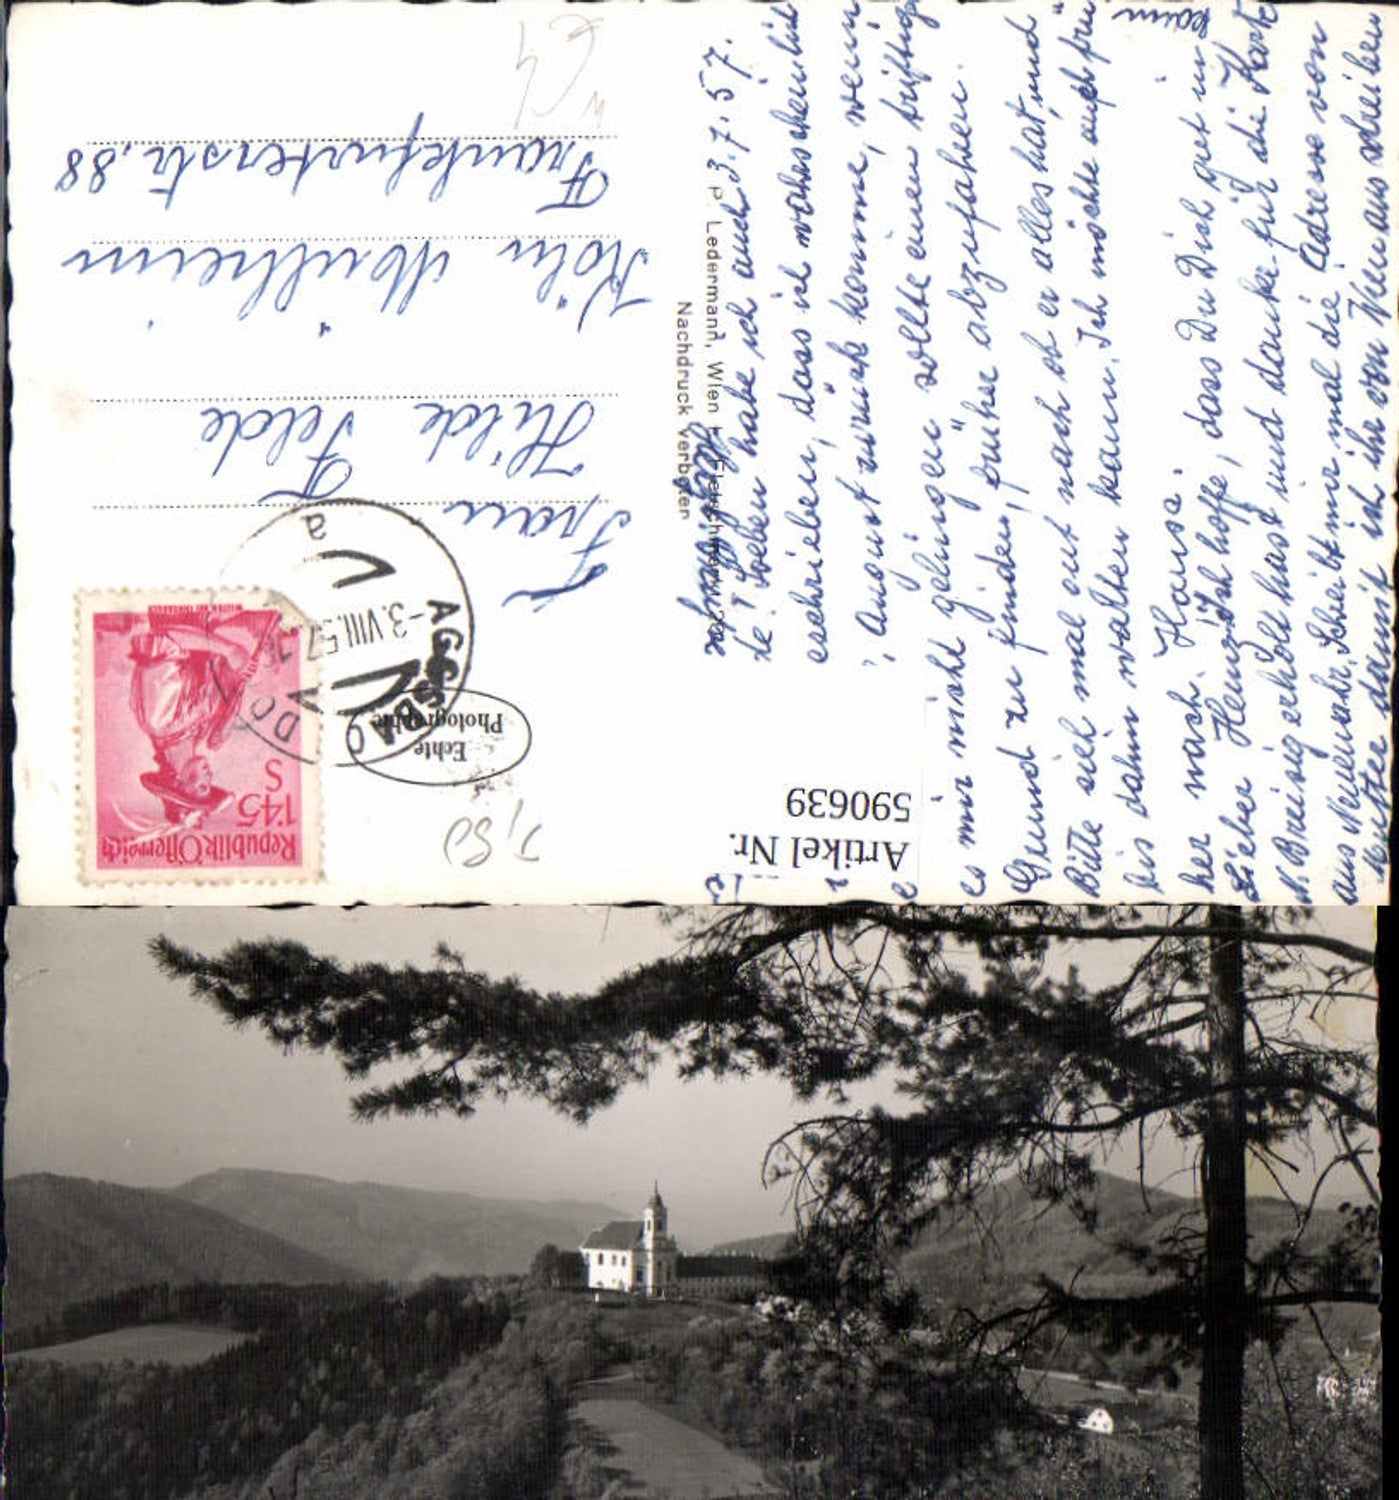 Frau
Hilde Felde
Köln Mülheim
Frankfurterstr. 88
Republik Österreich
1'45
S
Echte
Photographie
-3.VIII.57
a
Artikel Nr.
590639
P. Ledermann, Wien
Nachdruck verboten
3.7.57.
Soeben habe ich auch
dass ich wahrscheinlich
August zurück komme, wenn
es mir nicht gelingen sollte einen triftigen
Grund zu finden, früher abzufahren.
Bitte sieh mal erst nach ob er alles hat, und
bis dahin walten kann. Ich möchte auch frü
her nach Hause.
kann
Lieber Heinz! Ich hoffe, dass Du Dich gut in
N. Breisig erholt hast und danke für die Karte
aus Neuenahr. Schreibt mir mal die Adresse von
Mutter damit ich ihr von Wien aus schreiben